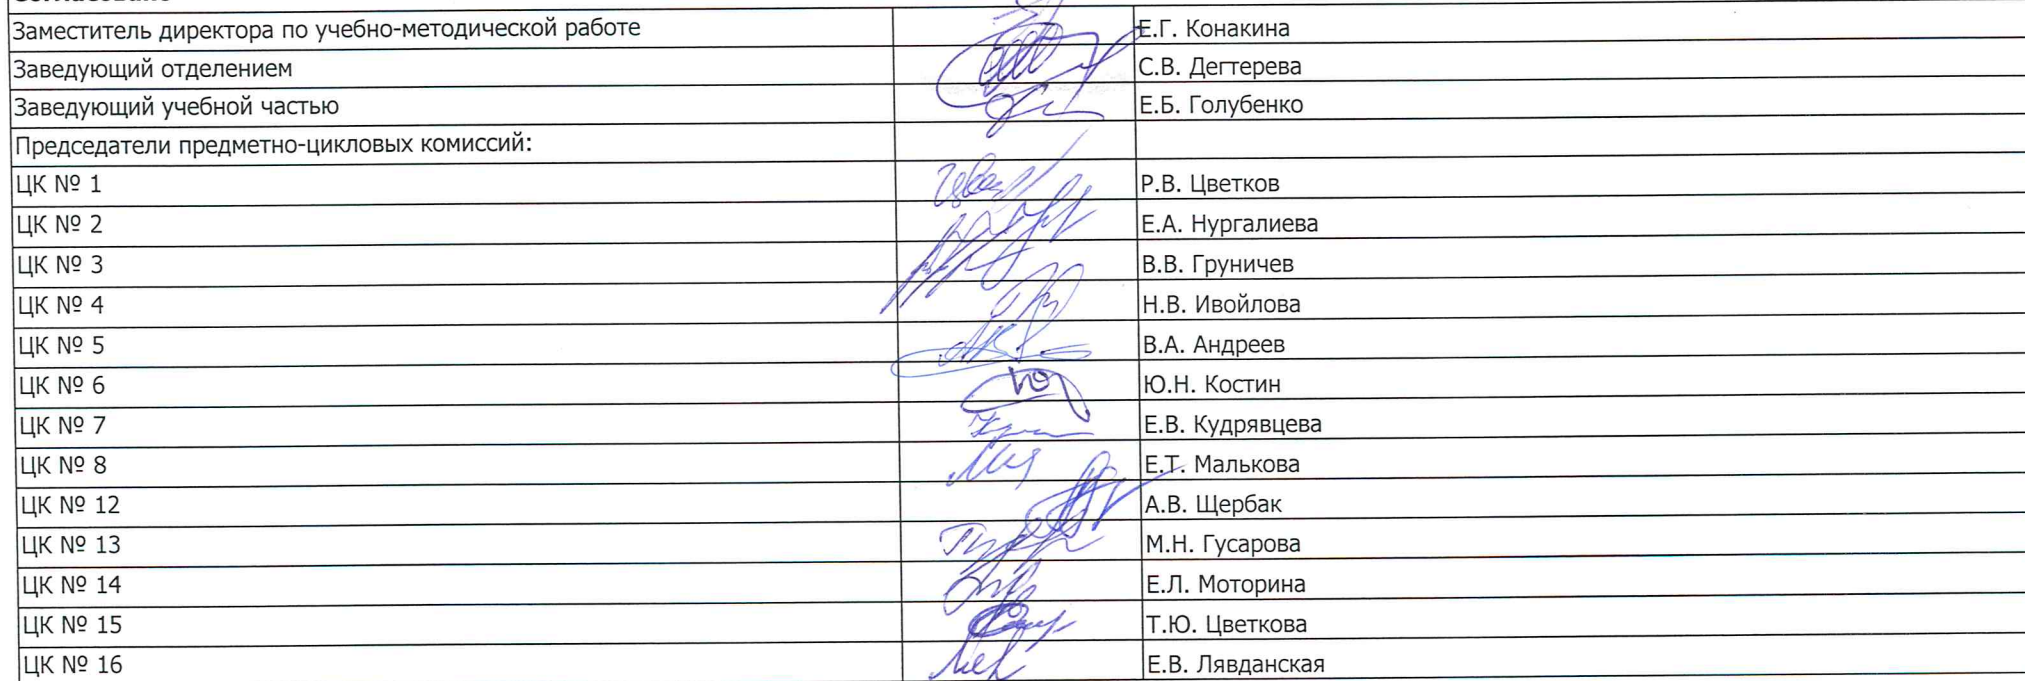 Заместитель директора по учебно-методической работе Е.Г. Конакина
Заведующий отделением С.В. Дегтерева
Заведующий учебной частью Е.Б. Голубенко
Председатели предметно-цикловых комиссий:
ЦК № 1 Р.В. Цветков
ЦК № 2 Е.А. Нургалиева
ЦК № 3 В.В. Груничев
ЦК № 4 Н.В. Ивойлова
ЦК № 5 В.А. Андреев
ЦК № 6 Ю.Н. Костин
ЦК № 7 Е.В. Кудрявцева
ЦК № 8 Е.Т. Малькова
ЦК № 12 А.В. Щербак
ЦК № 13 М.Н. Гусарова
ЦК № 14 Е.Л. Моторина
ЦК № 15 Т.Ю. Цветкова
ЦК № 16 Е.В. Лявданская